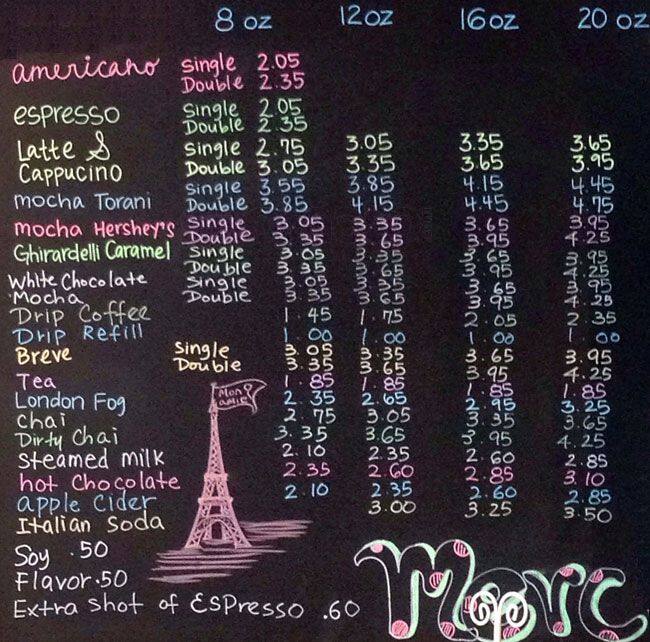 8 oz 12oz 16oz 20 oz
americano Single 2.05
Double 2.35
espresso Single 2.05
Double 2.35
Latte & Single 2.75 3.05 3.35 3.65
Cappucino Double 3.05 3.35 3.65 3.95
mocha Torani Single 3.55 3.85 4.15 4.45
Double 3.85 4.15 4.45 4.75
mocha Hershey's Single 3.05 3.35 3.65 3.95
Double 3.35 3.65 3.95 4.25
Ghirardelli Caramel Single 3.05 3.35 3.65 3.95
Double 3.35 3.65 3.95 4.25
White Chocolate Single 3.05 3.35 3.65 3.95
Mocha Double 3.35 3.65 3.95 4.25
Drip Coffee 1.45 1.75 2.05 2.35
Drip Refill 1.00 1.00 1.00 1.00
Breve Single 3.05 3.35 3.65 3.95
Double 3.35 3.65 3.95 4.25
Tea 1.85 1.85 1.85 1.85
London Fog 2.35 2.65 2.95 3.25
Chai 2.75 3.05 3.35 3.65
Dirty Chai 3.35 3.65 3.95 4.25
Steamed milk 2.10 2.35 2.60 2.85
hot Chocolate 2.35 2.60 2.85 3.10
apple Cider 2.10 2.35 2.60 2.85
Italian Soda 3.00 3.25 3.50
Mon
amie
Soy .50
Flavor .50
Extra Shot of Espresso .60